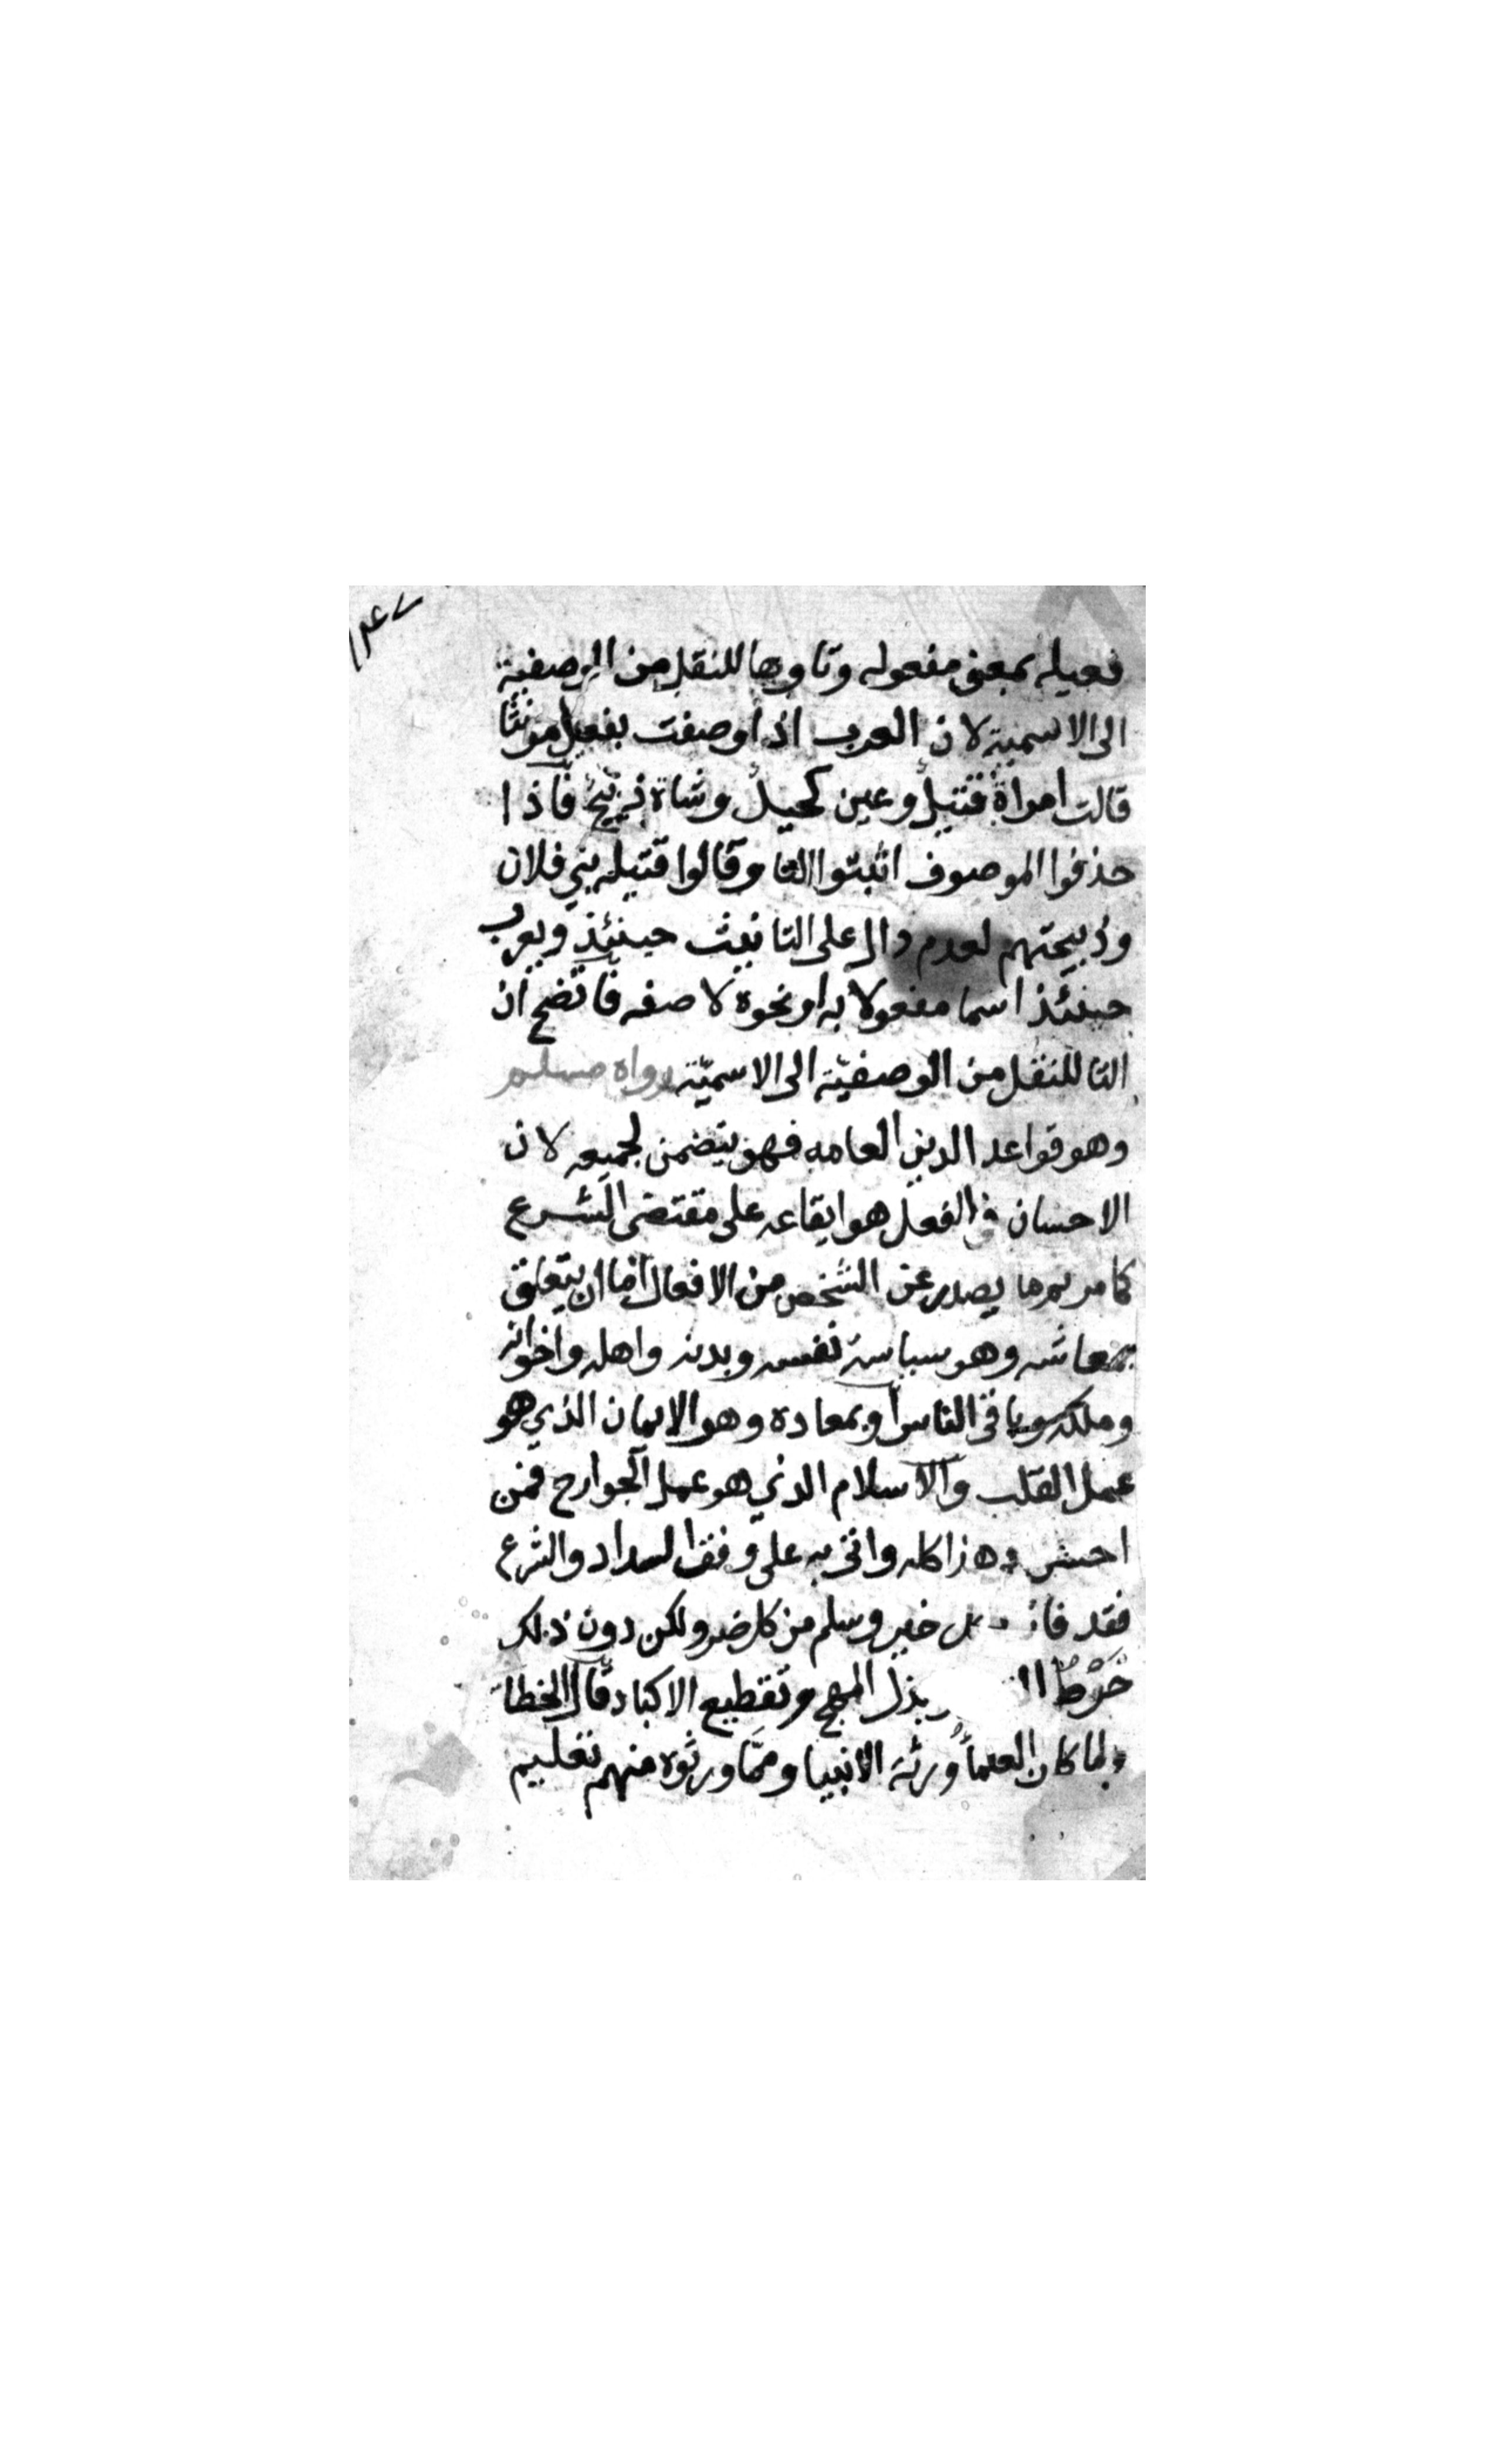 ١٤٧
فعيله بمعنى مفعوله وتاوها للنقل من الوصفية
الى الاسمية لان العرب اذا وصفت بفعيل مونثا
قالت امراة قتيل وعين كحيل وشاة ذبيح فاذا
حذفوا الموصوف اثبتوا التا وقالوا قتيله بني فلان
وذبيحتهم لعدم دال على التانيث حينئذ ويعرب
حينئذ اسما مفعولا به او نحوه لا صفه فاتضح ان
التا للنقل من الوصفيّة الى الاسميّة رواه مسلم
وهو قواعد الدين العامه فهو يتضمن لجميعه لان
الاحسان في الفعل هو ايقاعه على مقتضى الشرع
كما مر ثم ما يصدر عن الشخص من الافعال اما ان يتعلق
بمعاشه وهو سياسة نفسه وبدنه واهله واخوانه
وملكه وباقي الناس او بمعاده وهو الايمان الذي هو
عمل القلب والاسلام الذي هو عمل الجوارح فمن
احسن هذا كله واتى به على وفق السداد والشرع
فقد فاز خير وسلم من كل ضر ولكن دون ذلك
خَرْطُ بذل المهج وتقطيع الاكباد قال الخطا
ولما كان العلماُ ورثة الانبيا وممّا ورثوه منهم تعليم